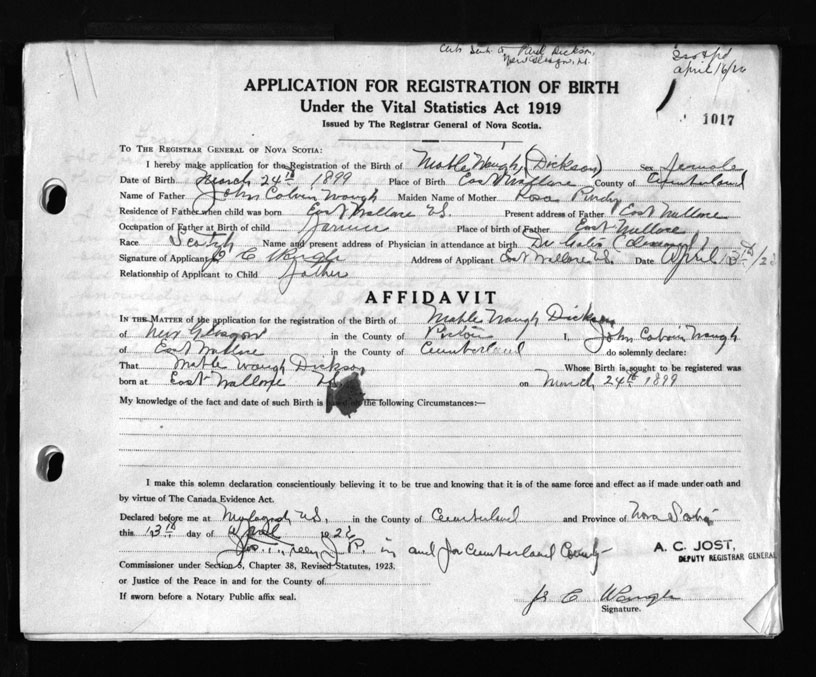 Paul Dickson,
New Glasgow, N.S.
April 16/26
APPLICATION FOR REGISTRATION OF BIRTH
Under the Vital Statistics Act 1919
Issued by The Registrar General of Nova Scotia.
1017
TO THE REGISTRAR GENERAL OF NOVA SCOTIA:
I hereby make application for the Registration of the Birth of Mable Waugh (Dickson) Sex Female
Date of Birth March 24th 1899 Place of Birth East Wallace County of Cumberland
Name of Father John Colvin Waugh Maiden Name of Mother Rosa Purdy
Residence of Father when child was born East Wallace N.S. Present address of Father East Wallace
Occupation of Father at Birth of child Farmer Place of birth of Father East Wallace
Race Scotch Name and present address of Physician in attendance at birth Dr (deceased)
Signature of Applicant J C Waugh Address of Applicant East Wallace N.S. Date April 13th
Relationship of Applicant to Child Father
AFFIDAVIT
IN THE MATTER of the application for the registration of the Birth of Mable Waugh Dickson
of New Glasgow in the County of Pictou I, John Colvin Waugh
of East Wallace in the County of Cumberland do solemnly declare:
That Mable Waugh Dickson Whose Birth is sought to be registered was
born at East Wallace N.S. on March 24th 1899
My knowledge of the fact and date of such Birth is based on the following Circumstances:—
I make this solemn declaration conscientiously believing it to be true and knowing that it is of the same force and effect as if made under oath and
by virtue of The Canada Evidence Act.
Declared before me at N.S. in the County of Cumberland and Province of Nova Scotia
this 13th day of April 1926
J. P. in and for Cumberland County
A. C. JOST,
DEPUTY REGISTRAR GENERAL
Commissioner under Section 5, Chapter 38, Revised Statutes, 1923.
or Justice of the Peace in and for the County of
If sworn before a Notary Public affix seal.
J C Waugh
Signature.